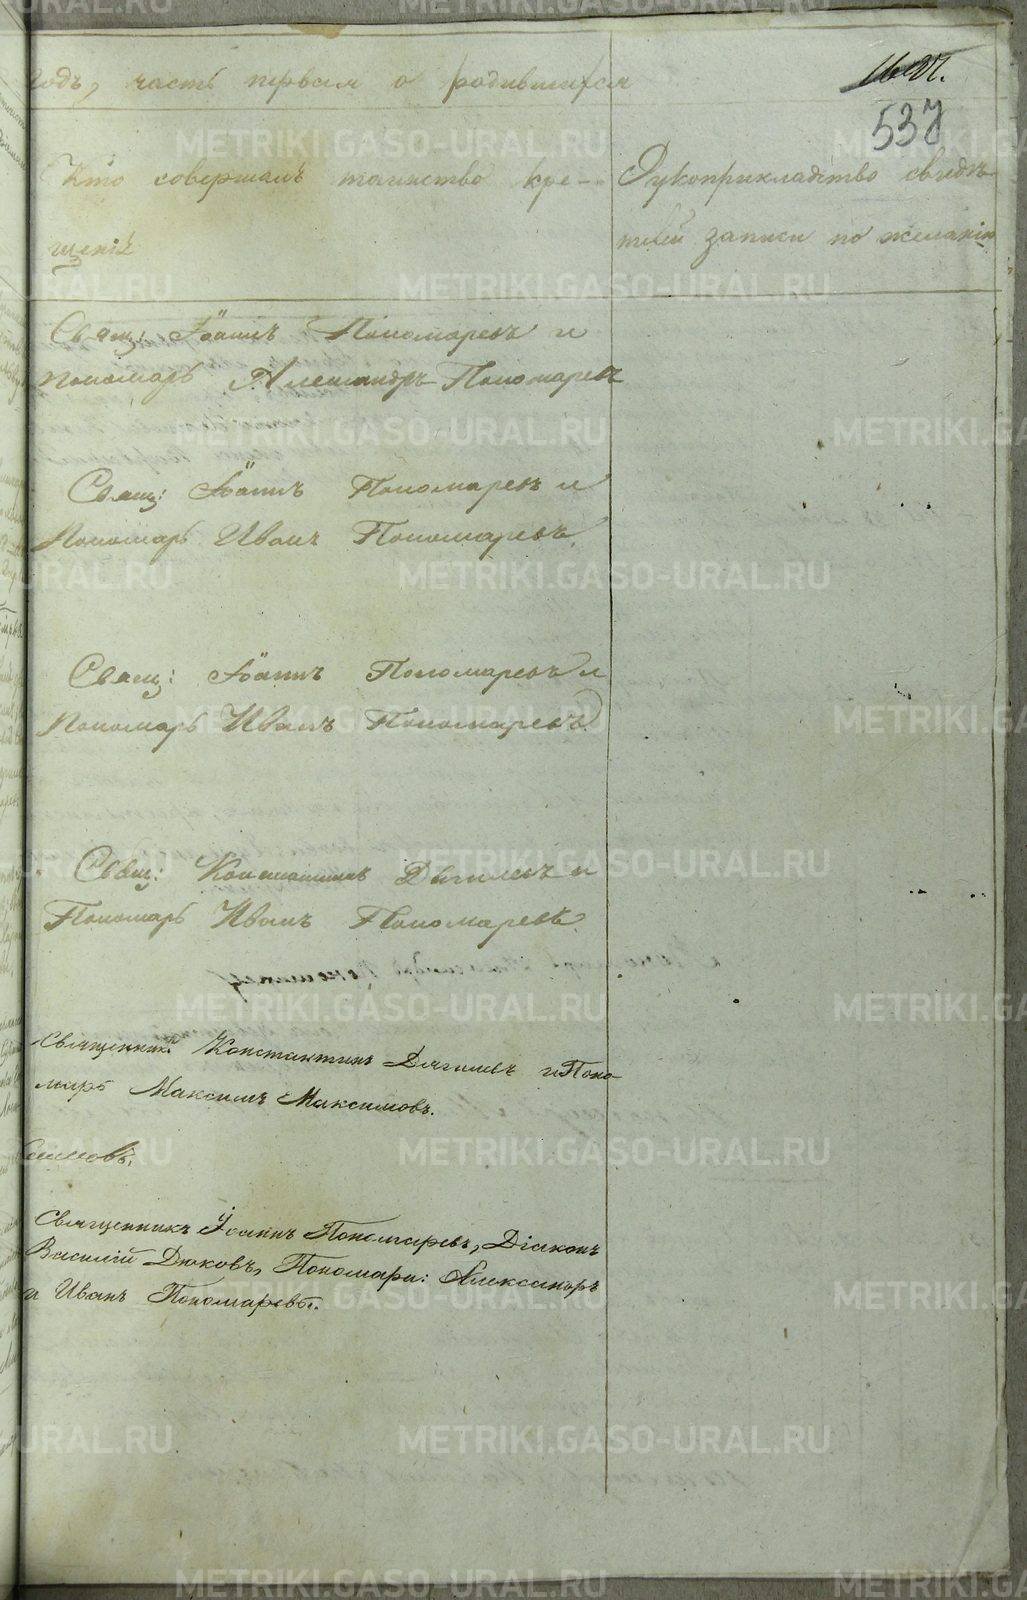 годъ, часть первая о родившихся
537
Кто совершалъ таинство кре-
щенія
Рукоприкладство свидѣ-
телей записи по желанію
Свящ: Іоаннъ Пономаревъ и
пономарь Александръ Пономаревъ
Свящ: Іоаннъ Пономаревъ и
Пономарь Иванъ Пономаревъ.
Свящ: Іоаннъ Пономаревъ и
Пономарь Иванъ Пономаревъ
Свящ: Константинъ Дягилевъ и
Пономарь Иванъ Пономаревъ.
Священникъ Константинъ Дягилевъ и Поно-
марь Максимъ Максимовъ.
Священникъ Іоаннъ Пономаревъ, Діаконъ
Василій Дюковъ, Пономари: Александръ
и Иванъ Пономаревы.
METRIKI.GASO-URAL.RU